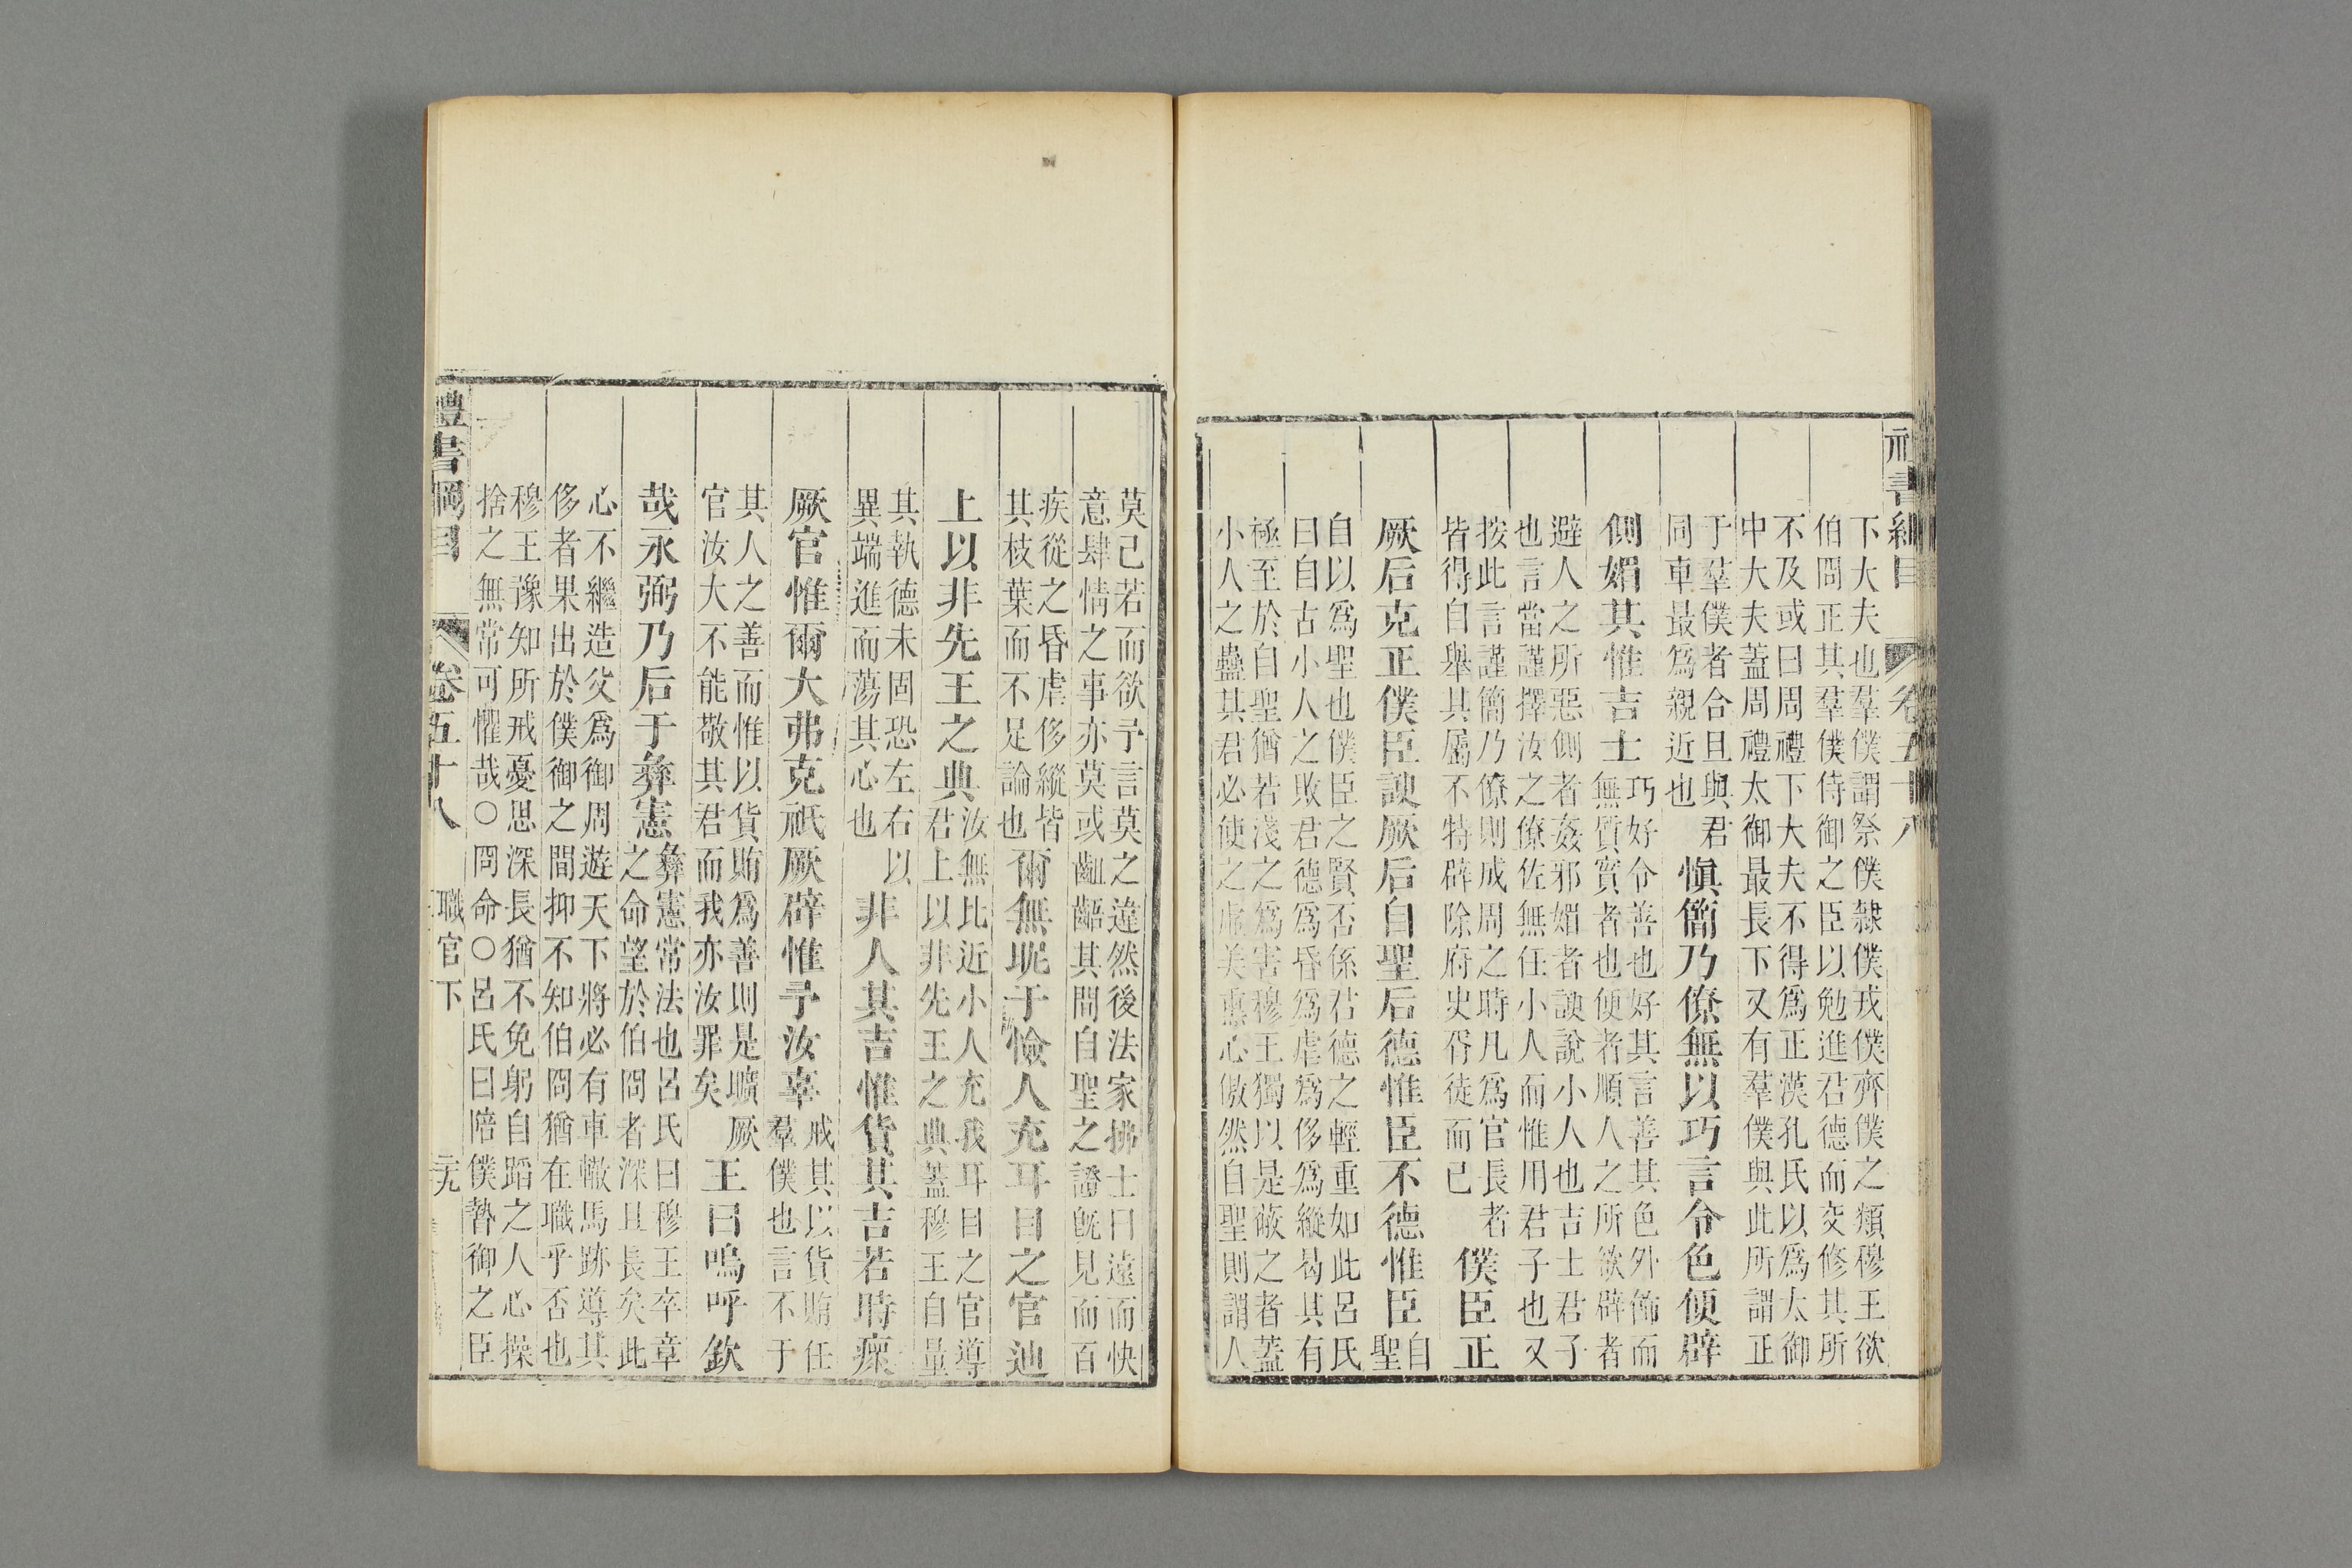 禮書綱目 卷五十八
下大夫也羣僕謂祭僕隸僕戎僕齊僕之類穆王欲
伯冏正其羣僕侍御之臣以勉進君德而交修其所
不及或曰周禮下大夫不得爲正漢孔氏以爲太御
中大夫蓋周禮太御最長下又有羣僕與此所謂正
于羣僕者合且與君
同車最爲親近也
愼簡乃僚無以巧言令色便辟
側媚其惟吉士
巧好令善也好其言善其色外飾而
無質實者也便者順人之所欲辟者
避人之所惡側者姦邪媚者諛說小人也吉士君子
也言當謹擇汝之僚佐無任小人而惟用君子也又
按此言謹簡乃僚則成周之時凡爲官長者
皆得自舉其屬不特辟除府史胥徒而已
僕臣正
厥后克正僕臣諛厥后自聖后德惟臣不德惟臣
自
聖
自以爲聖也僕臣之賢否係君德之輕重如此呂氏
曰自古小人之敗君德爲昏爲虐爲侈爲縱曷其有
極至於自聖猶若淺之爲害穆王獨以是蔽之者蓋
小人之蠱其君必使之虛美熏心傲然自聖則謂人
莫己若而欲予言莫之違然後法家拂士日遠而快
意肆情之事亦莫或齟齬其間自聖之證旣見而百
疾從之昏虐侈縱皆
其枝葉而不足論也
爾無昵于憸人充耳目之官迪
上以非先王之典
汝無比近小人充我耳目之官導
君上以非先王之典蓋穆王自量
其執德未固恐左右以
異端進而蕩其心也
非人其吉惟貨其吉若時瘝
厥官惟爾大弗克祇厥辟惟予汝辜
戒其以貨賄任
羣僕也言不于
其人之善而惟以貨賄爲善則是曠厥
官汝大不能敬其君而我亦汝罪矣
王曰嗚呼欽
哉永弼乃后于彝憲
彝憲常法也呂氏曰穆王卒章
之命望於伯冏者深且長矣此
心不繼造父爲御周遊天下將必有車轍馬跡導其
侈者果出於僕御之間抑不知伯冏猶在職乎否也
穆王豫知所戒憂思深長猶不免躬自蹈之人心操
捨之無常可懼哉○冏命○呂氏曰陪僕暬御之臣
禮書綱目 卷五十八 職官下 二九